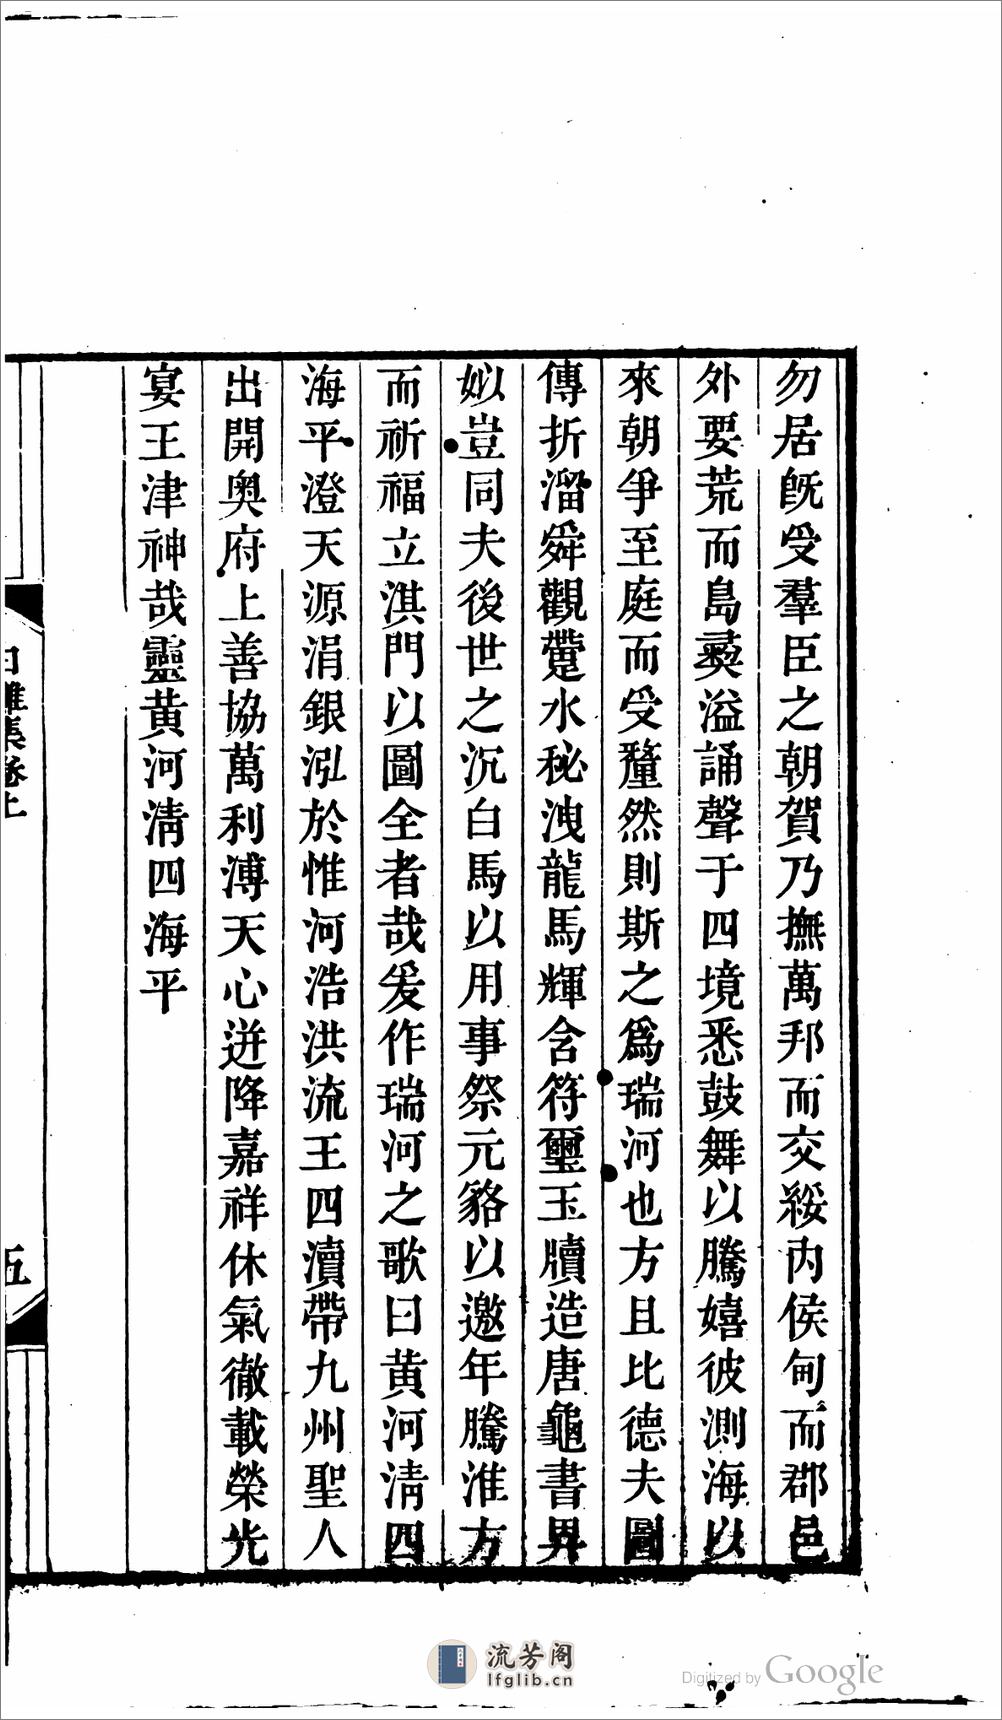 勿居旣受羣臣之朝賀乃撫萬邦而交綏內侯甸而郡邑
外要荒而島彝溢誦聲于四境悉鼓舞以騰嬉彼測海以
來朝爭至庭而受釐然則斯之爲瑞河也方且比德夫圖
傳折溜舜觀躉水秘洩龍馬輝含符璽玉牘造唐龜書畀
姒豈同夫後世之沉白馬以用事祭元貉以邀年騰淮方
而祈福立淇門以圖全者哉爰作瑞河之歌曰黄河淸四
海平澄天源涓銀泓於惟河浩洪流王四瀆帶九州聖人
出開奥府上善協萬利溥天心迸降嘉祥休氣徹載榮光
宴王津神哉靈黄河淸四海平
集卷上
五
流芳阁
lfglib.cn
Digitized by Google